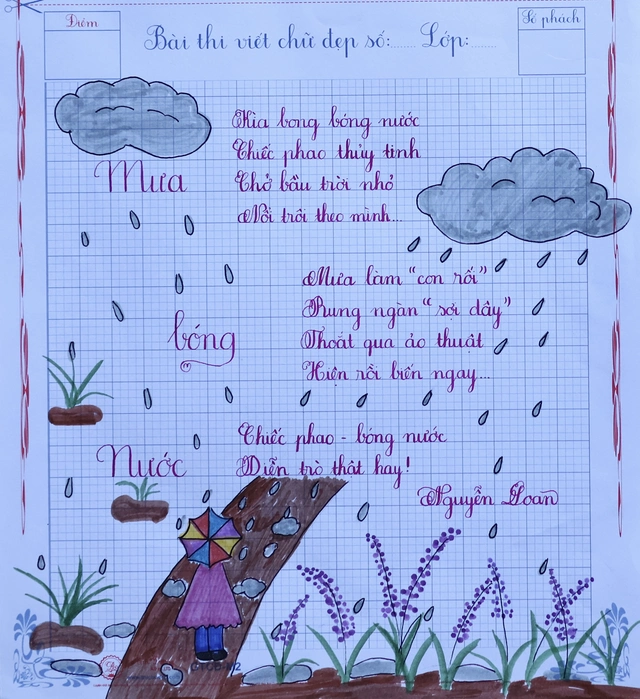 Điểm
Số phách
Bài thi viết chữ đẹp số:....... Lớp:.......
Mưa
bóng
Nước
Kìa bong bóng nước
Chiếc phao thủy tinh
Chở bầu trời nhỏ
Nổi trôi theo mình...
Mưa làm "con rối"
Rung ngàn "sợi dây"
Thoắt qua ảo thuật
Hiện rồi biến ngay...
Chiếc phao - bóng nước
Diễn trò thật hay!
Nguyễn Loan